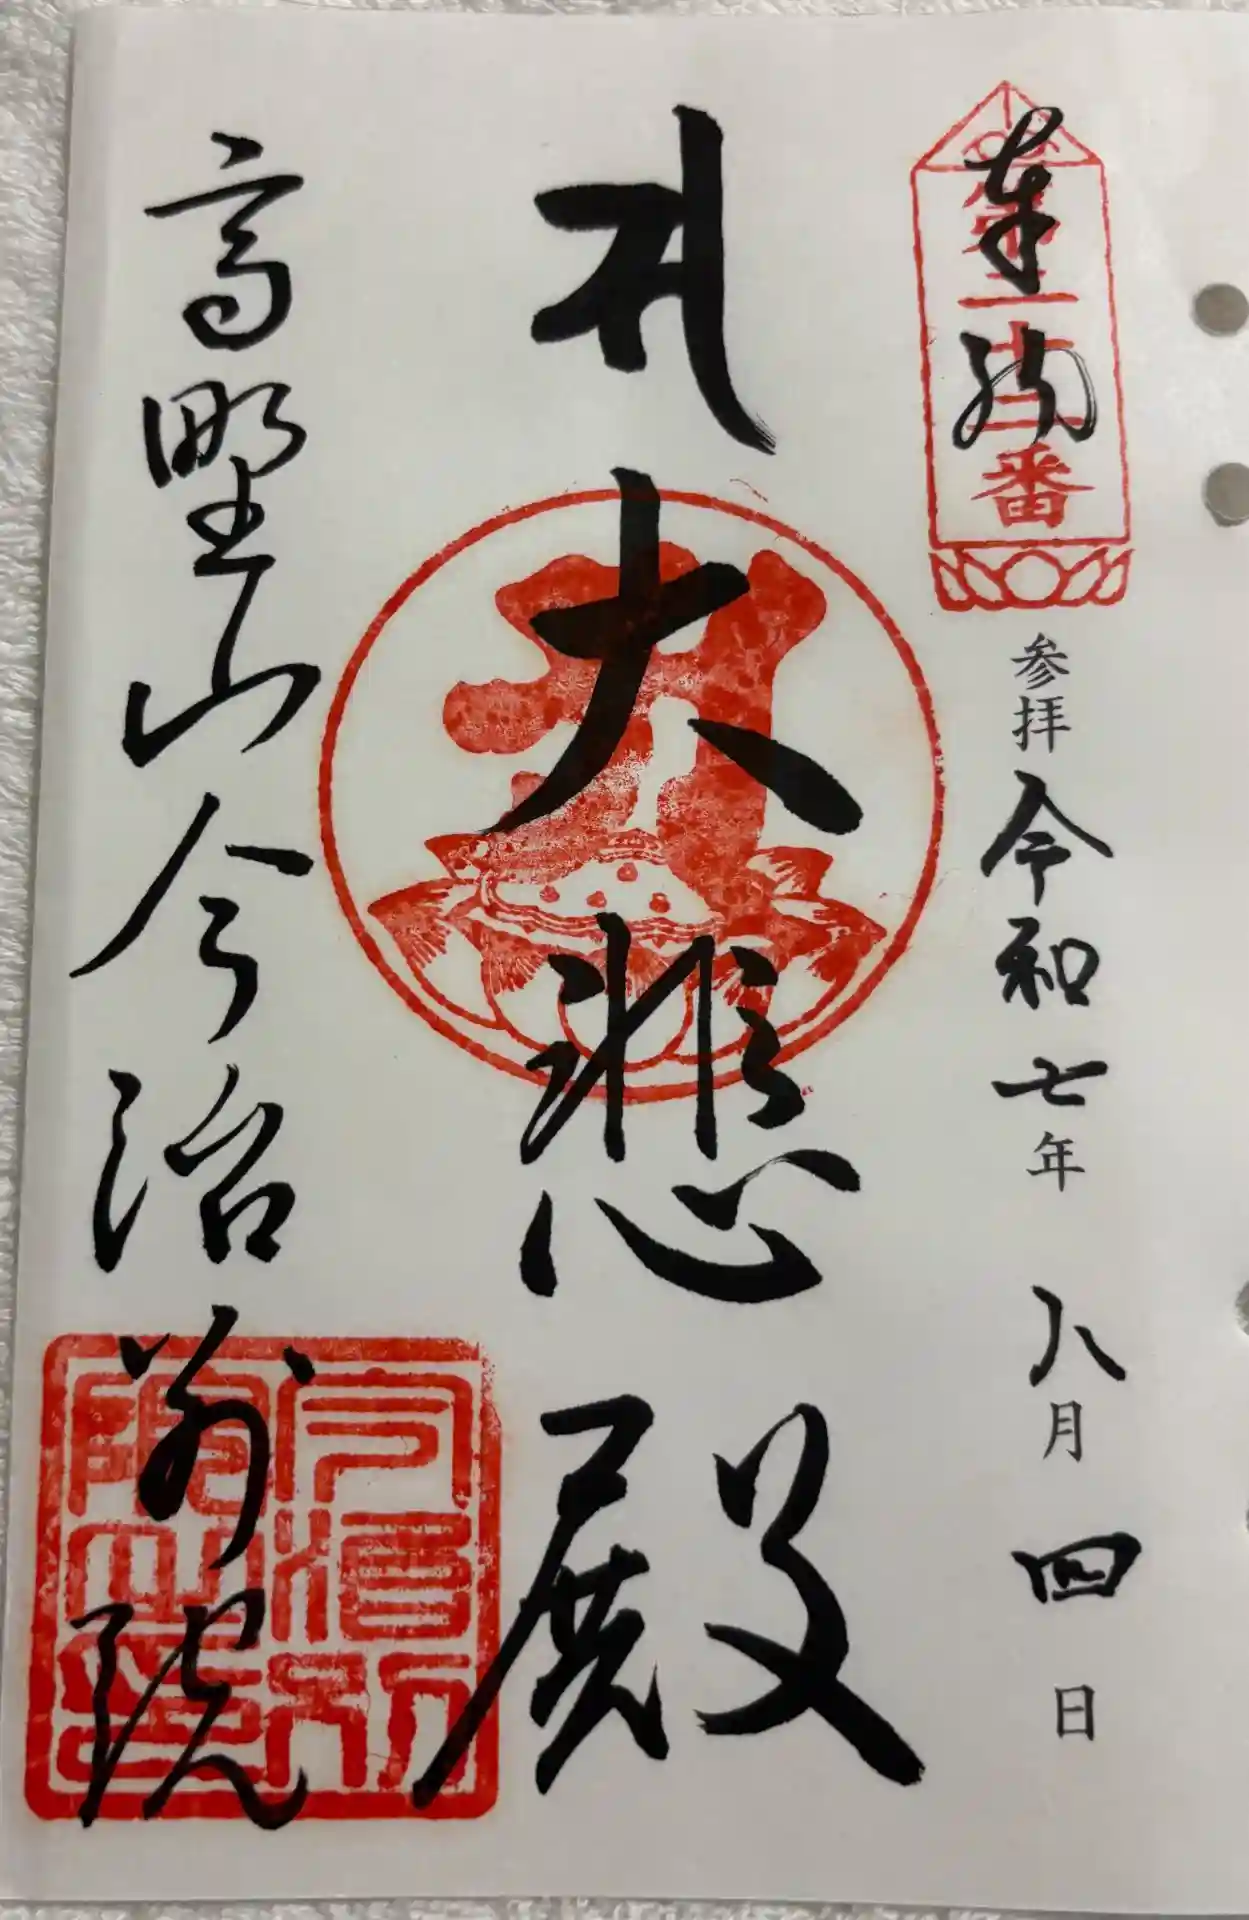 奉納
参拝 令和七年 八月 四日
大悲殿
高野山今治別院